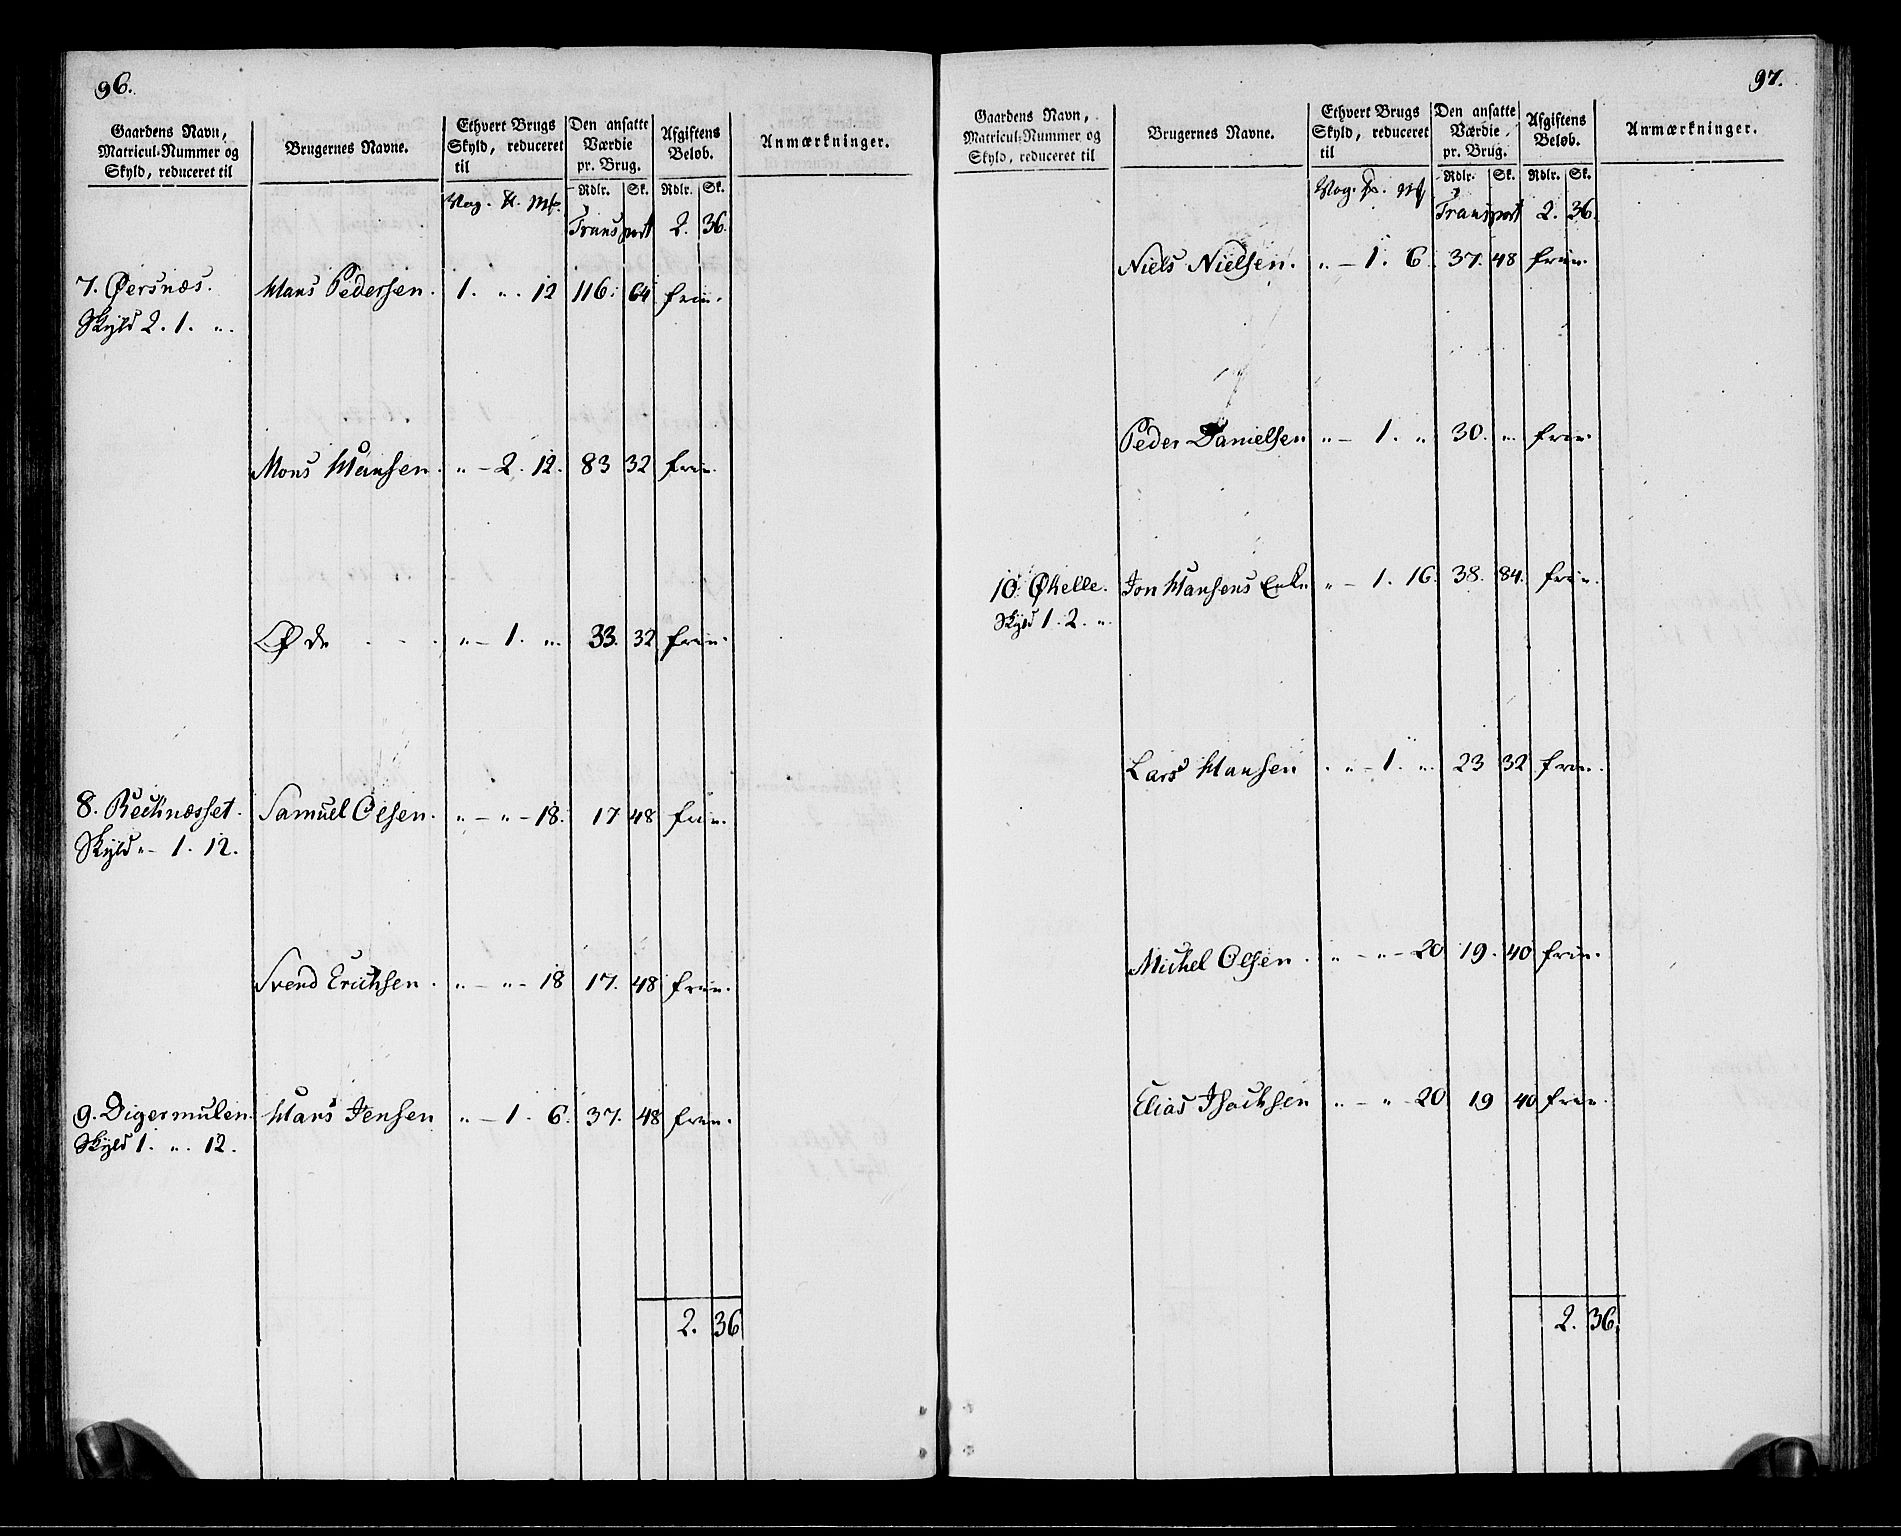 96.
Gaardens Navn, Matricul-Nummer og Skyld, reduceret til
Brugernes Navne.
Ethvert Brugs Skyld, reduceret til
Den ansatte Værdie pr. Brug.
Afgiftens Beløb.
Anmærkninger.
Vog. ℔. Mk. Rdlr. Sk. Rdlr. Sk.
Transport 2. 36.
7. Øersnæs. Hans Pedersen. 1. „. 12 116. 64 frie.
Skyld 2. 1. „.
Mons Hansen. „ - 2. 12. 83 32 frie.
Øde . . . „ - 1. „. 33. 32 frie.
8. Rechnæsset. Samuel Olsen. „ - „ - 18. 17 48 frie.
Skyld „ - 1. 12.
Svend Erichsen. „ - „ - 18 17. 48 frie.
9. Digermulen. Hans Jensen „ - 1. 6. 37. 48 frie.
Skyld 1. „. 12.
2. 36
97.
Gaardens Navn, Matricul-Nummer og Skyld, reduceret til
Brugernes Navne.
Ethvert Brugs Skyld, reduceret til
Den ansatte Værdie pr. Brug.
Afgiftens Beløb.
Anmærkninger.
Vog. ℔. Mk Rdlr. Sk. Rdlr. Sk.
Transport 2. 36.
Niels Nielsen. „ - 1. 6. 37. 48 frie.
Peder Danielsen „ - 1. „ 30. „ frie.
10. Øhelle. Jon Hansens Enke „ - 1. 16. 38. 84. frie.
Skyld 1. 2. „.
Lars Hansen . „ - 1. „. 23 32 frie.
Michel Olsen. „ - „ - 20 19. 40 frie.
Elias Isachsen „ - „ - 20 19 40 frie.
2. 36.